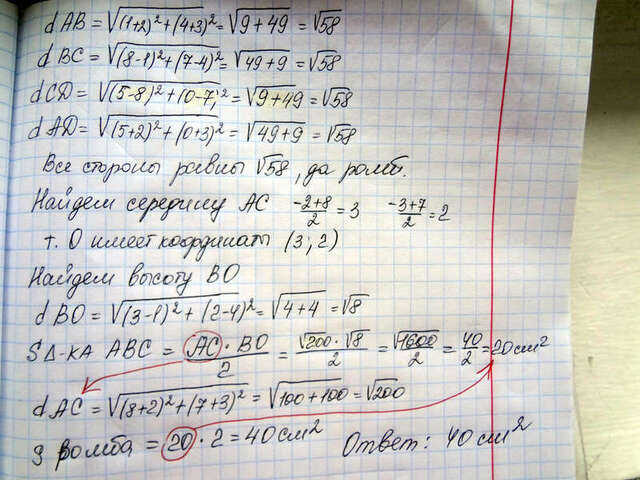 dAB = √(1+2)² + (4+3)² = √9+49 = √58
dBC = √(8-1)² + (7-4)² = √49+9 = √58
dCD = √(5-8)² + (0-7)² = √9+49 = √58
dAD = √(5+2)² + (0+3)² = √49+9 = √58
Все стороны равны √58, да ромб.
Найдем середину AC (-2+8)/2 = 3 (-3+7)/2 = 2
т. О имеет координаты (3; 2)
Найдем высоту BO
dBO = √(3-1)² + (2-4)² = √4+4 = √8
SΔ-ка ABC = (AC · BO)/2 = (√200 · √8)/2 = √1600/2 = 40/2 = 20 см²
dAC = √(8+2)² + (7+3)² = √100+100 = √200
S ромба = 20 · 2 = 40 см² Ответ: 40 см²